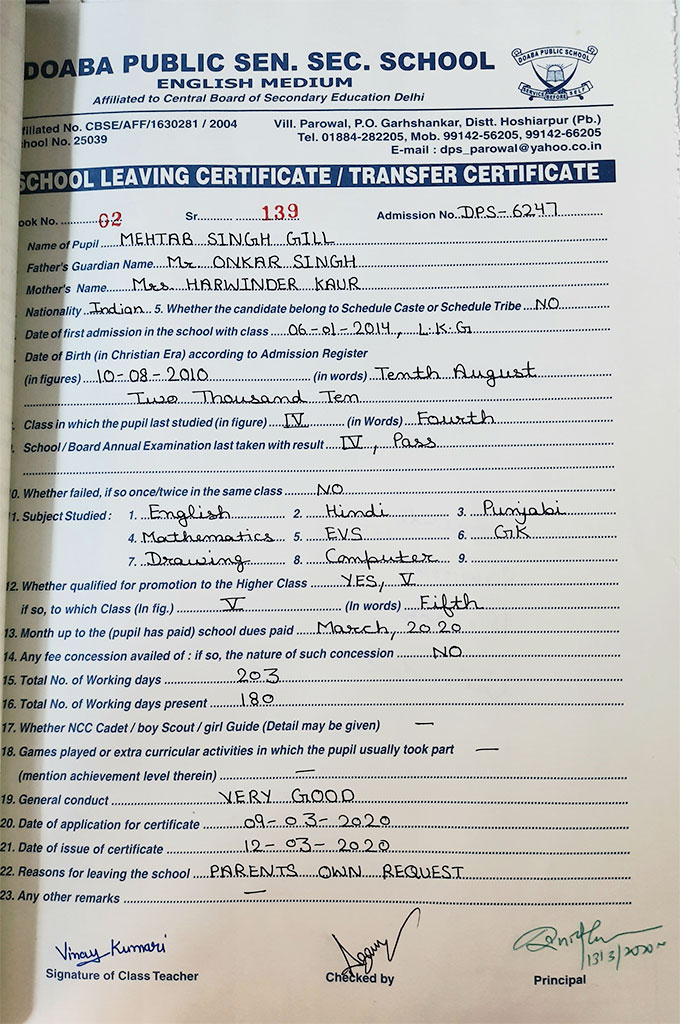 DOABA PUBLIC SEN. SEC. SCHOOL
ENGLISH MEDIUM
Affiliated to Central Board of Secondary Education Delhi
DOABA PUBLIC SCHOOL
SERVICE BEFORE SELF
filiated No. CBSE/AFF/1630281 / 2004 Vill. Parowal, P.O. Garhshankar, Distt. Hoshiarpur (Pb.)
hool No. 25039 Tel. 01884-282205, Mob. 99142-56205, 99142-66205
E-mail : dps_parowal@yahoo.co.in
SCHOOL LEAVING CERTIFICATE / TRANSFER CERTIFICATE
ook No. 02 Sr. 139 Admission No. DPS-6247
Name of Pupil MEHTAB SINGH GILL
Father's Guardian Name Mr. ONKAR SINGH
Mother's Name Mrs. HARWINDER KAUR
Nationality Indian 5. Whether the candidate belong to Schedule Caste or Schedule Tribe NO
Date of first admission in the school with class 06-01-2014, L.K.G
Date of Birth (in Christian Era) according to Admission Register
(in figures) 10-08-2010 (in words) Tenth August
Two Thousand Ten
Class in which the pupil last studied (in figure) IV (in Words) Fourth
School / Board Annual Examination last taken with result IV, Pass
0. Whether failed, if so once/twice in the same class NO
1. Subject Studied : 1. English 2. Hindi 3. Punjabi
4. Mathematics 5. EVS 6. GK
7. Drawing 8. Computer 9.
12. Whether qualified for promotion to the Higher Class YES, V
if so, to which Class (In fig.) V (In words) Fifth
13. Month up to the (pupil has paid) school dues paid March, 2020
14. Any fee concession availed of : if so, the nature of such concession NO
15. Total No. of Working days 203
16. Total No. of Working days present 180
17. Whether NCC Cadet / boy Scout / girl Guide (Detail may be given) —
18. Games played or extra curricular activities in which the pupil usually took part —
(mention achievement level therein) —
19. General conduct VERY GOOD
20. Date of application for certificate 09-03-2020
21. Date of issue of certificate 12-03-2020
22. Reasons for leaving the school PARENTS OWN REQUEST
23. Any other remarks —
Vinay Kumari
13/3/2020
Signature of Class Teacher Checked by Principal